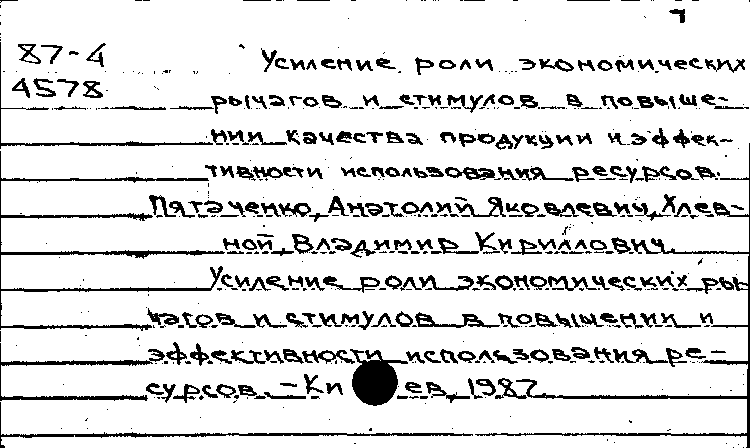 87-4 Усиление роли экономических
4578 рычагов и стимулов в повыше-
нии качества продукции и эффек-
тивности использования ресурсов.
Пятаченко, Анатолий Яковлевич, Хлев-
ной, Владимир Кириллович.
Усиление роли экономических ры
чагов и стимулов в повышении и
эффективности использования ре-
сурсов. - Ки ев, 1987.